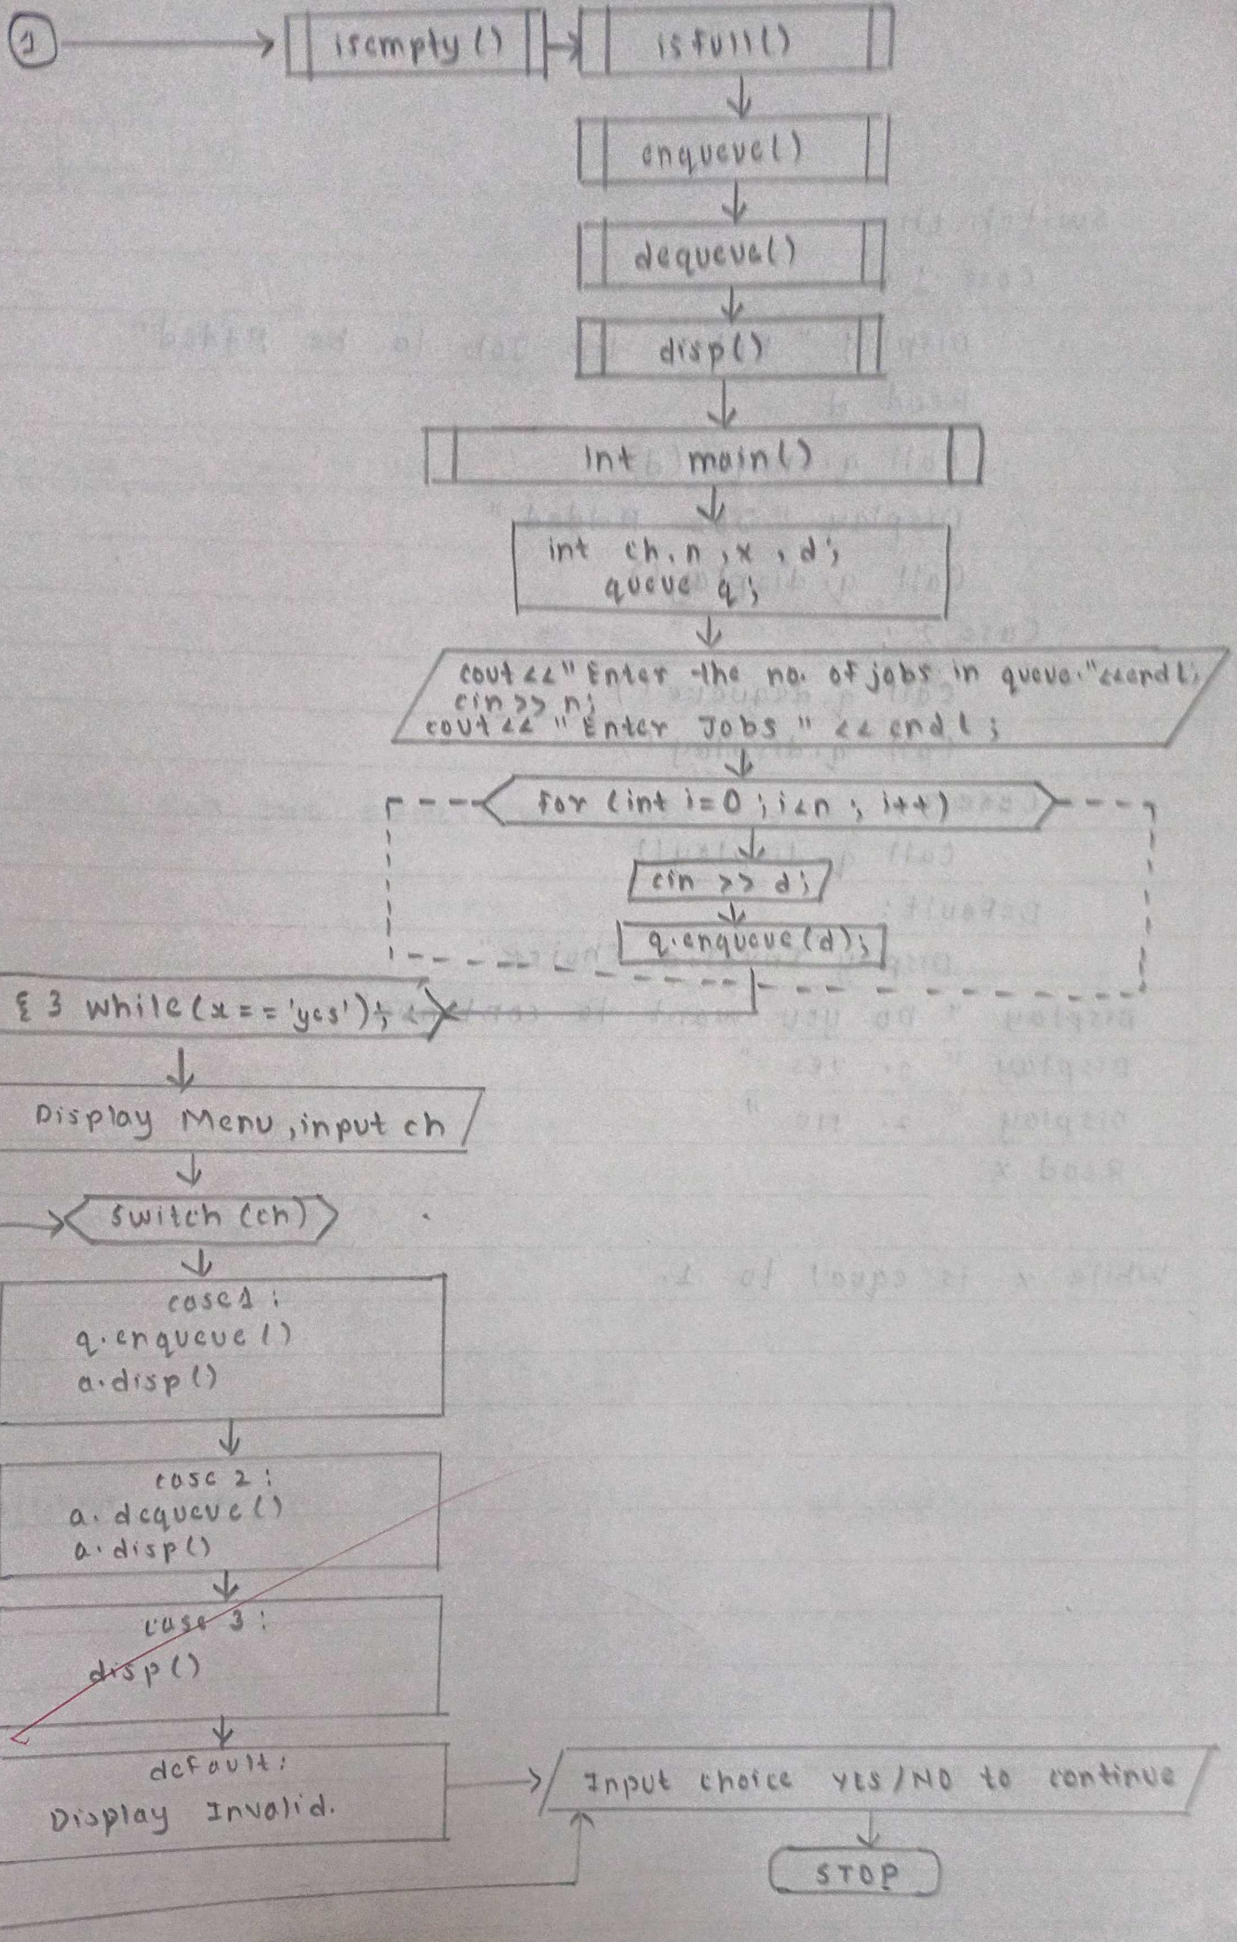 1
isempty()
isfull()
enqueue()
dequeue()
disp()
int main()
int ch, n, x, d;
queue q;
cout << "Enter the no. of jobs in queue."<<endl;
cin >> n;
cout << "Enter Jobs" << endl;
for (int i=0; i<n; i++)
cin >> d;
q.enqueue(d);
{ } while(x=='yes');
Display Menu, input ch
switch (ch)
case 1:
q.enqueue()
a.disp()
case 2:
a.dequeue()
a.disp()
case 3:
disp()
default:
Display Invalid.
Input choice YES/NO to continue
STOP